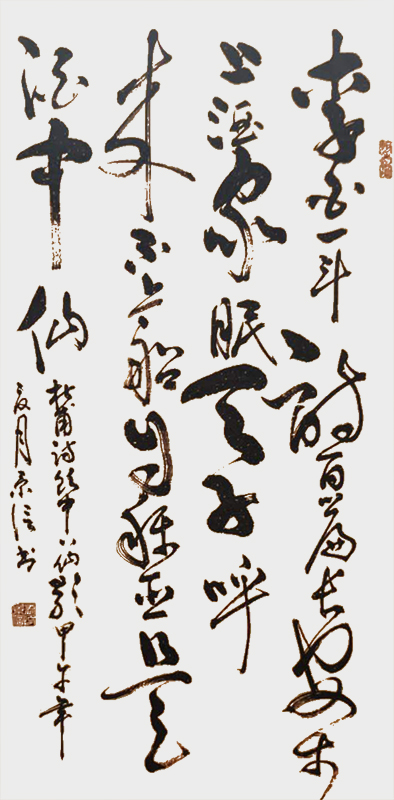 李白一斗诗百篇长安市
上酒家眠天子呼
来不上船自称臣是
酒中仙
杜甫诗饮中八仙歌甲午年
夏月信书